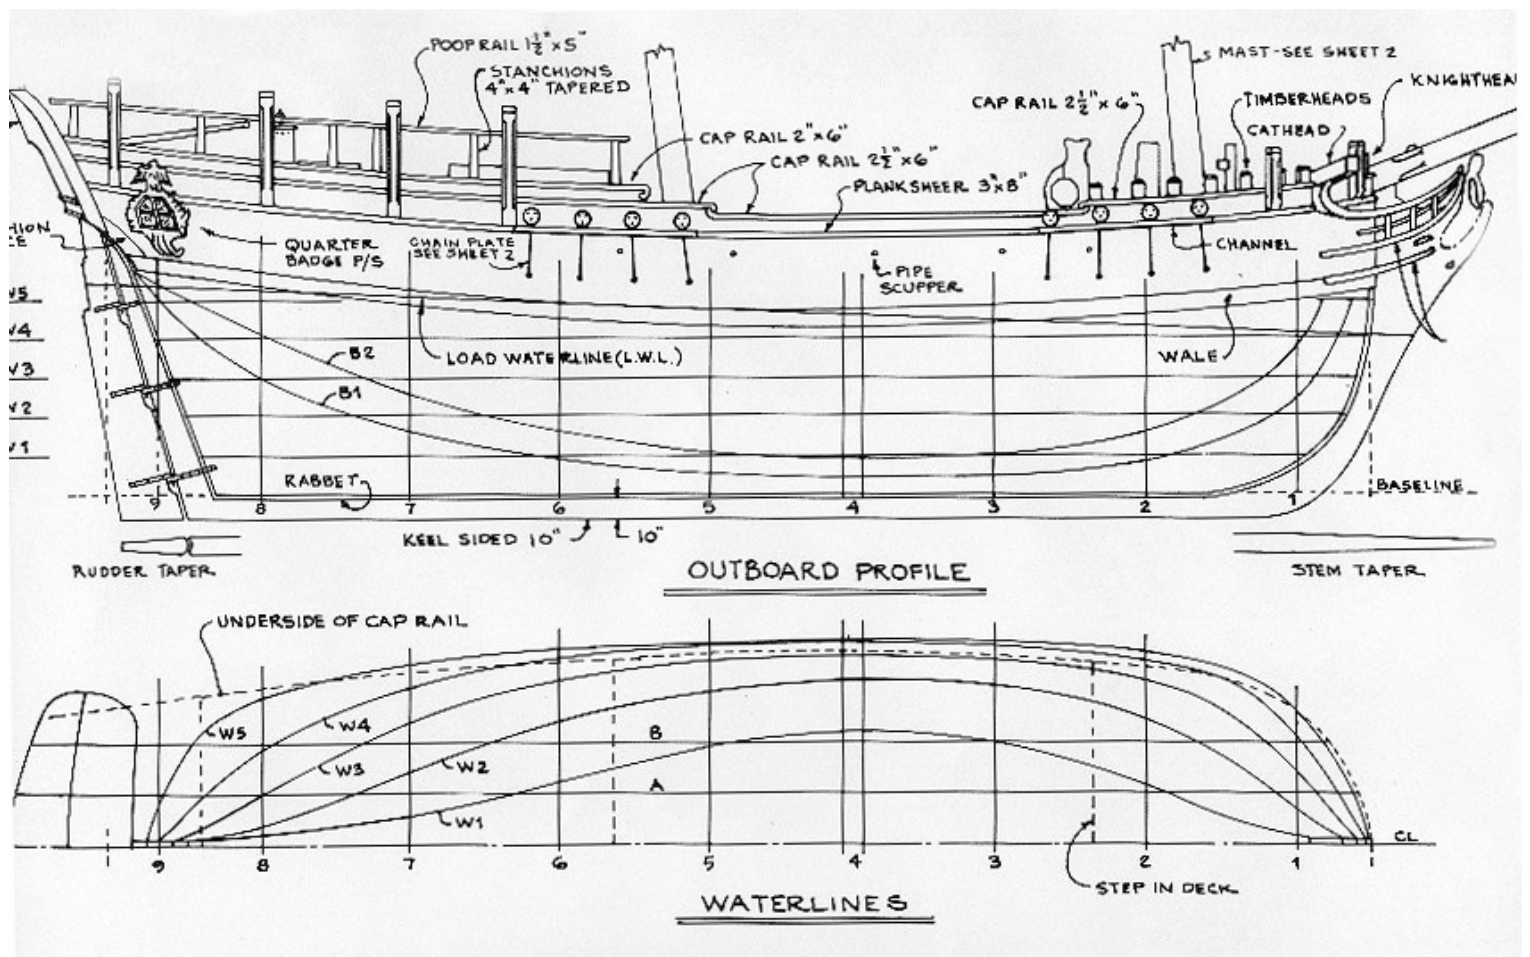 POOP RAIL 1½" x 5"
STANCHIONS
4" x 4" TAPERED
MAST-SEE SHEET 2
KNIGHTHEA
CAP RAIL 2½" x 6"
TIMBERHEADS
CATHEAD
CAP RAIL 2" x 6"
CAP RAIL 2½" x 6"
PLANKSHEER 3" x 8"
HION
CE
QUARTER
BADGE P/S
CHAIN PLATE
SEE SHEET 2
CHANNEL
PIPE
SCUPPER
W5
W4
B2
LOAD WATERLINE (L.W.L.)
WALE
W3
B1
W2
W1
RABBET
BASELINE
9 8 7 6 5 4 3 2 1
KEEL SIDED 10"
10"
RUDDER TAPER
OUTBOARD PROFILE
STEM TAPER
UNDERSIDE OF CAP RAIL
W5
W4
B
W3
W2
A
W1
CL
9 8 7 6 5 4 3 2 1
STEP IN DECK
WATERLINES